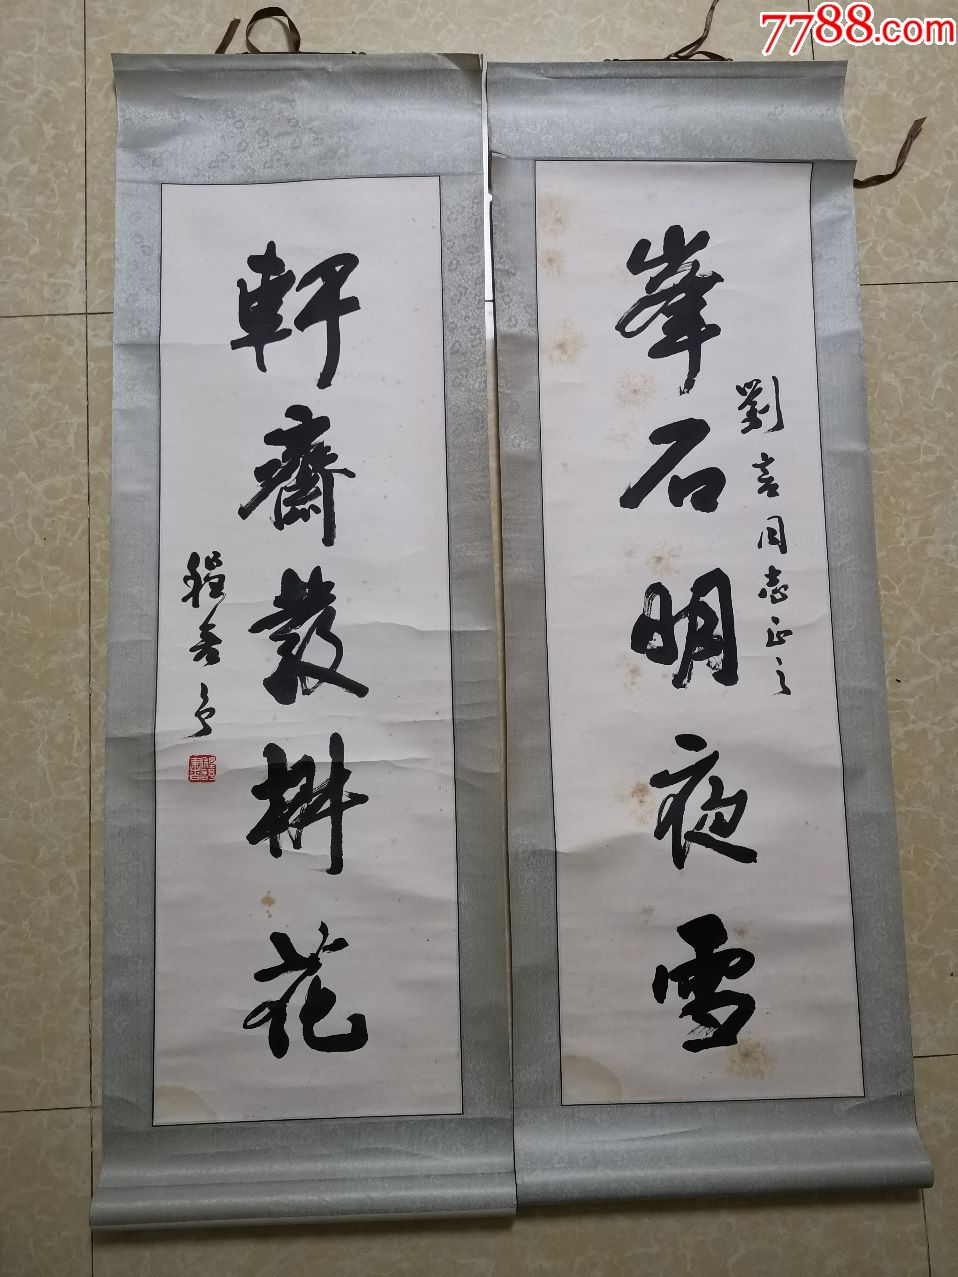 7788.com
峯石明夜雪
劉言同志正之
軒齋發掛花
程